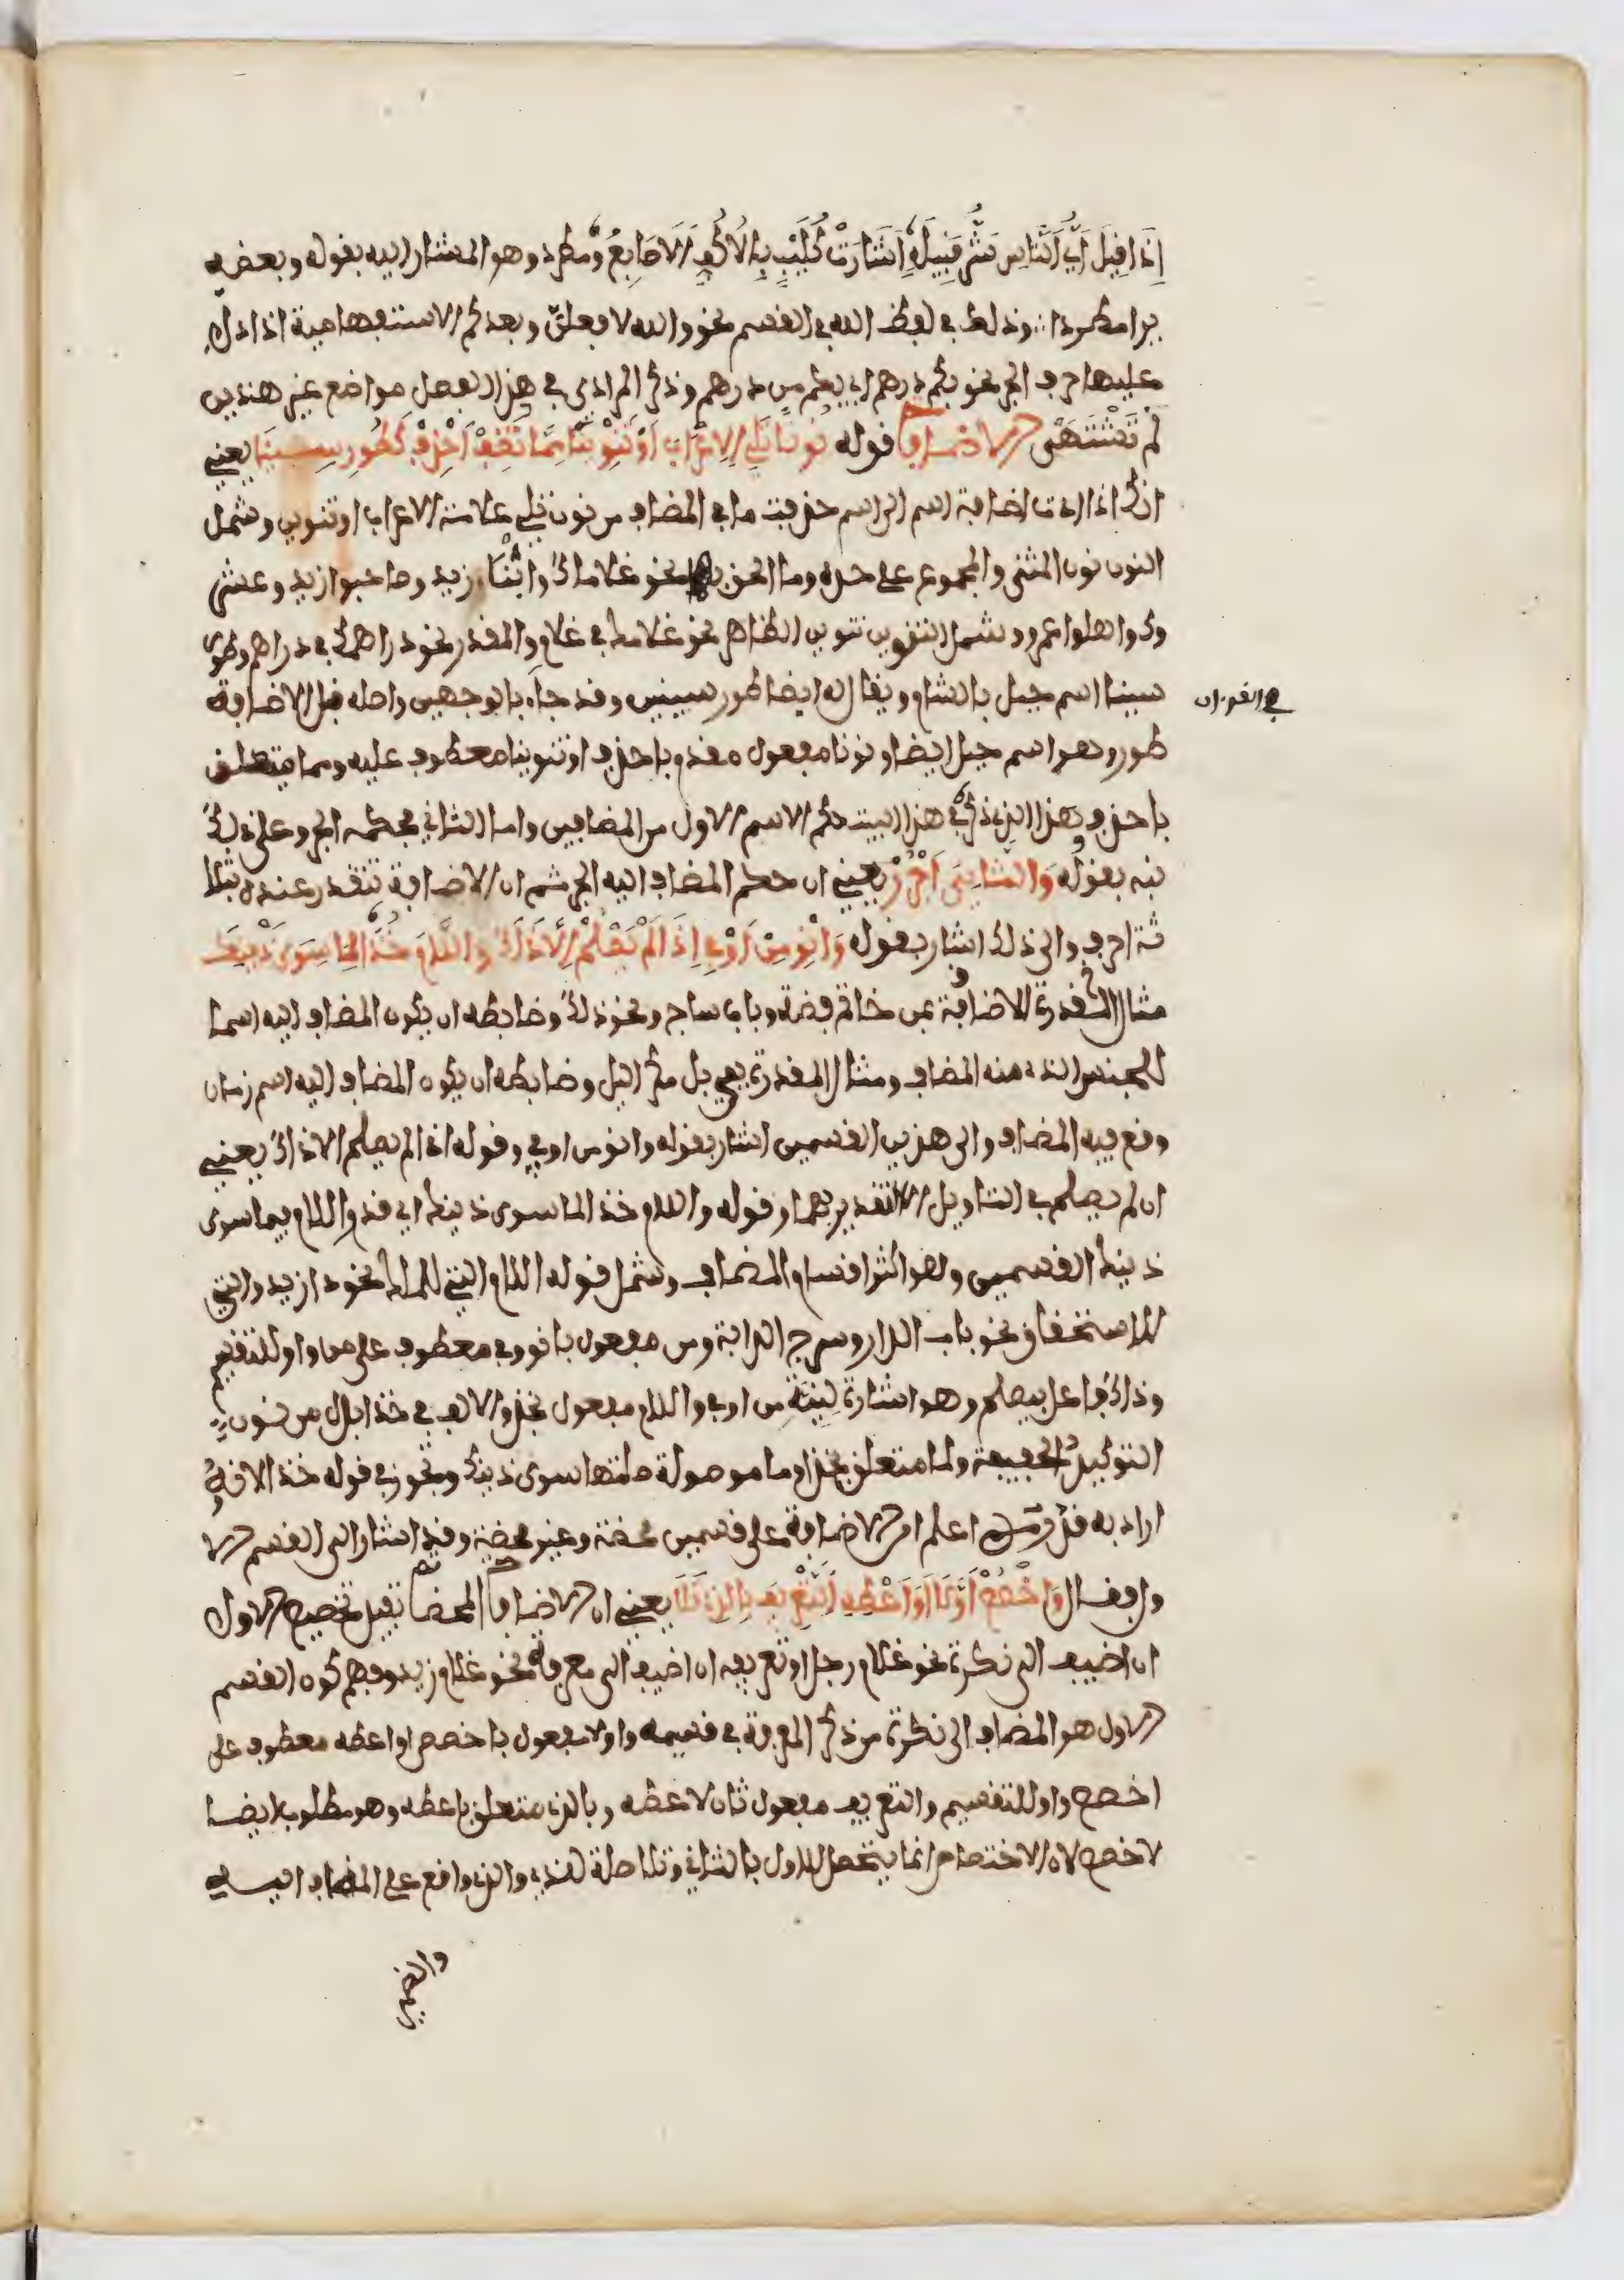 إِذَا قِيلَ أَيُّ النَّاسِ شَرُّ قَبِيلَةٍ أَشَارَتْ كُلَيْبٍ بِالَاكُفِّ الَاصَابِعُ ومطرد وهو المشار اليه بقوله وبعضه
يرا مطردا وذلك في لفظ الله في القسم نحو والله لافعلن وبعد كم الاستفهامية اذا دخل
عليها حرف الجر نحو بكم درهم اي بكم من درهم وذكر المرادي في هذا الفصل مواضع غير هذين
لم تشتهر الاضافة قوله نُونًا تَلِي الِاعْرَابَ أَوْ تَنْوِينَا مِمَّا تُضِفْ احْذِفْ كَطُورِ سِينَا يعني
انك اذا اردت اضافة اسم الى اسم حذفت ما في المضاف من نون تلي علامة الاعراب او تنوين وشمل
النون نون المثنى والمجموع على حده وما الحق بهما نحو غلاماك واثنا زيد وصاحبوا زيد وعشر
وك واهلوا عمرو وشمل التنوين تنوين الظاهر نحو غلامك في غلام والمقدر نحو دراهمك في دراهم وطور
سينا اسم جبل بالشام ويقال له ايضا طور سينين وقد جاء بالوجهين واصله قبل الاضافة
في القرءان
طور وهو اسم جبل ايضا ونونا مفعول مقدم باحذف او تنوينا معطوف عليه ومما متعلق
باحذف وهذا الذي ذكر في هذا البيت حكم الاسم الاول من المضافين واما الثاني فحكمه الجر وعلى ذلك
نبه بقوله وَالثَّانِيَ اجْرُرْ يعني ان حكم المضاف اليه الجر ثم ان الاضافة تتقدر عنده بثلا
ثة احرف والى ذلك اشار بقوله وَانْوِ مِنْ أَوْ فِي إِذَا لَمْ يَصْلُحِ الَّا ذَاكَ وَاللَّامَ خُذَا لِمَا سِوَى ذَيْنِكَ
مثال المقدرة الاضافة بمن خاتم فضة وباب ساج ونحو ذلك وضابطه ان يكون المضاف اليه اسما
للجنس الذي منه المضاف ومثال المقدرة بفي بل مكر اليل وضابطه ان يكون المضاف اليه اسم زمان
وقع فيه المضاف والى هذين القسمين اشار بقوله وانو من او في وقوله اذا لم يصلح الا ذاك يعني
ان لم يصلح في التاويل الا التقدير بهما وقوله واللام خذا لما سوى ذينك اي قدر اللام فيما سوى
ذينك القسمين وهو اكثر اقسام المضاف وشمل قوله اللام التي للملك نحو دار زيد والتي
للاستحقاق نحو باب الدار وسرج الدابة ومن مفعول بانو وفي معطوف على من واو للتقسيم
وذاك فاعل بيصلح وهو اشارة لنية من او في واللام مفعول بخذ والالف في خذا بدل من نون
التوكيد الخفيفة ولما متعلق بخذا وما موصولة صلتها سوى ذينك وتجوز في قوله خذا لانه
اراد به قدر اعلم ان الاضافة على قسمين محضة وغير محضة وقد اشار الى القسم الا
ول فقال وَاخْصُصْ أَوَّلَا أَوَ اعْطِهِ التَّعْرِيفَ بِالَّذِي تَلَا يعني ان الاضافة المحضة تفيد تخصيص الاول
ان اضيف الى نكرة نحو غلام رجل او تعريفه ان اضيف الى معرفة نحو غلام زيد وفهم كون القسم
الاول هو المضاف الى نكرة من ذكر المعرفة في قسيمه واولا مفعول باخصص او اعطه معطوف على
اخصص واو للتقسيم والتعريف مفعول ثان لاعطه وبالذي متعلق باعطه وهو مطلوب ايضا
لاخصص لان الاختصاص انما يتحصل للاول بالثاني وتلا صلة للذي والذي واقع على المضاف اليه